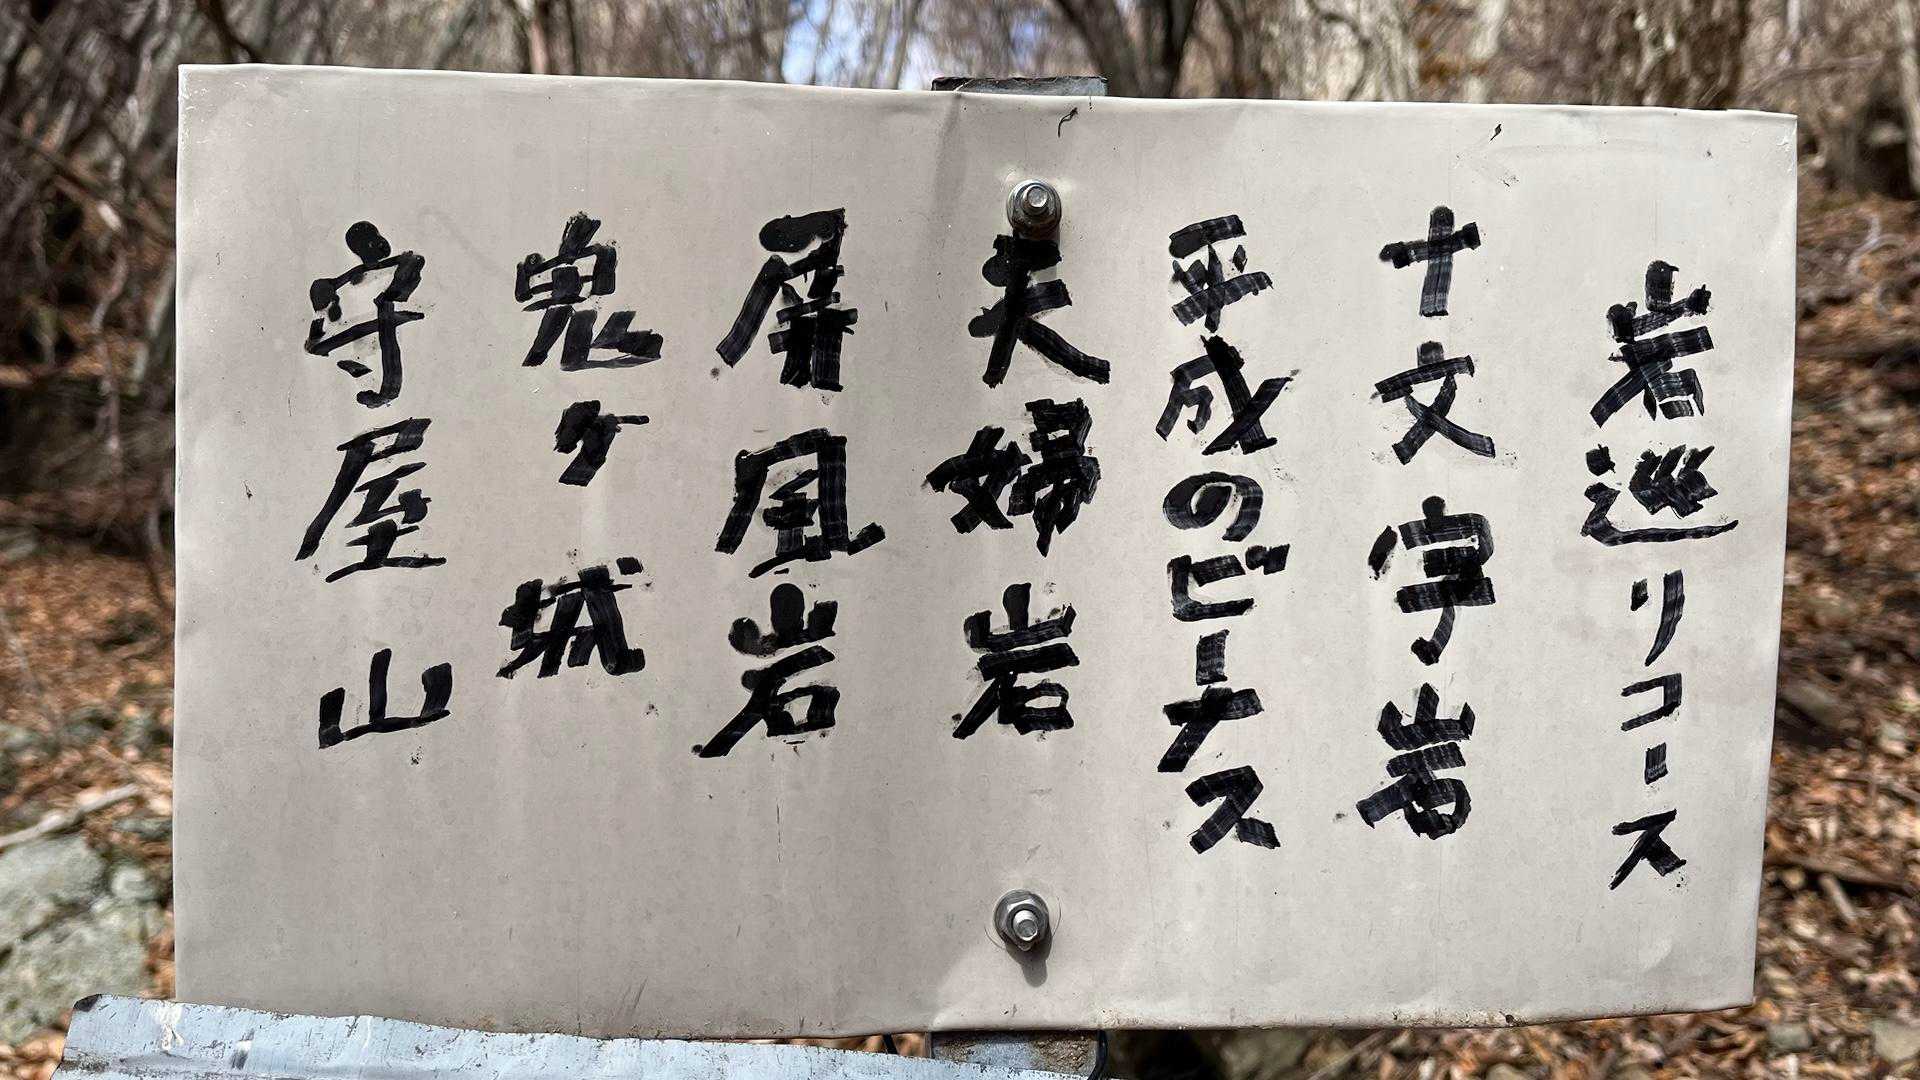 岩巡リコース
十文字岩
平成のビーナス
夫婦岩
屏風岩
鬼ケ城
守屋山